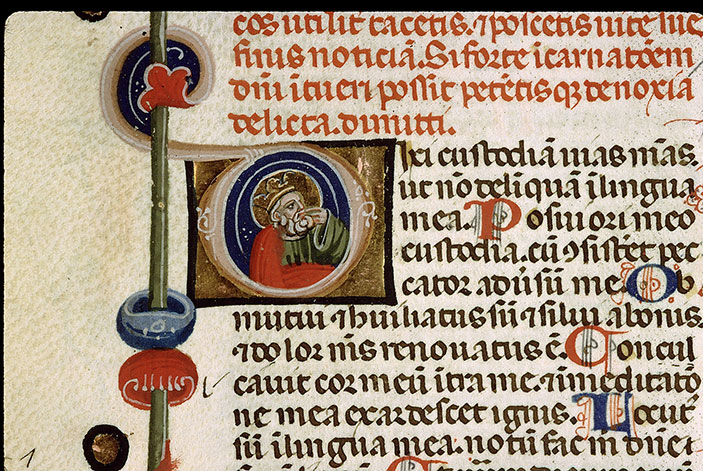 cos utilit tacetis. ⁊ poscetis uite me
finis noticiā. Si forte icarnatōem
dn̄i ītueri possit petētis q̄ tenoxia
delicta. dimitti.
Dixi custodiā uias m̄as.
ut nō deliquā ī lingua
mea. Posui ori meo
custodiā. cū ꝯsistet pec
cator adūsū me. Ob
mutui ⁊ huīliatus sū ⁊ silui a bonis.
⁊ dolor m̄s renouatus ē. Concal
cauit cor meū ītra me. ⁊ ī meditatō
ne mea exardescet ignis. Locut'
sū ī lingua mea. notū fac m̄ dn̄e
1